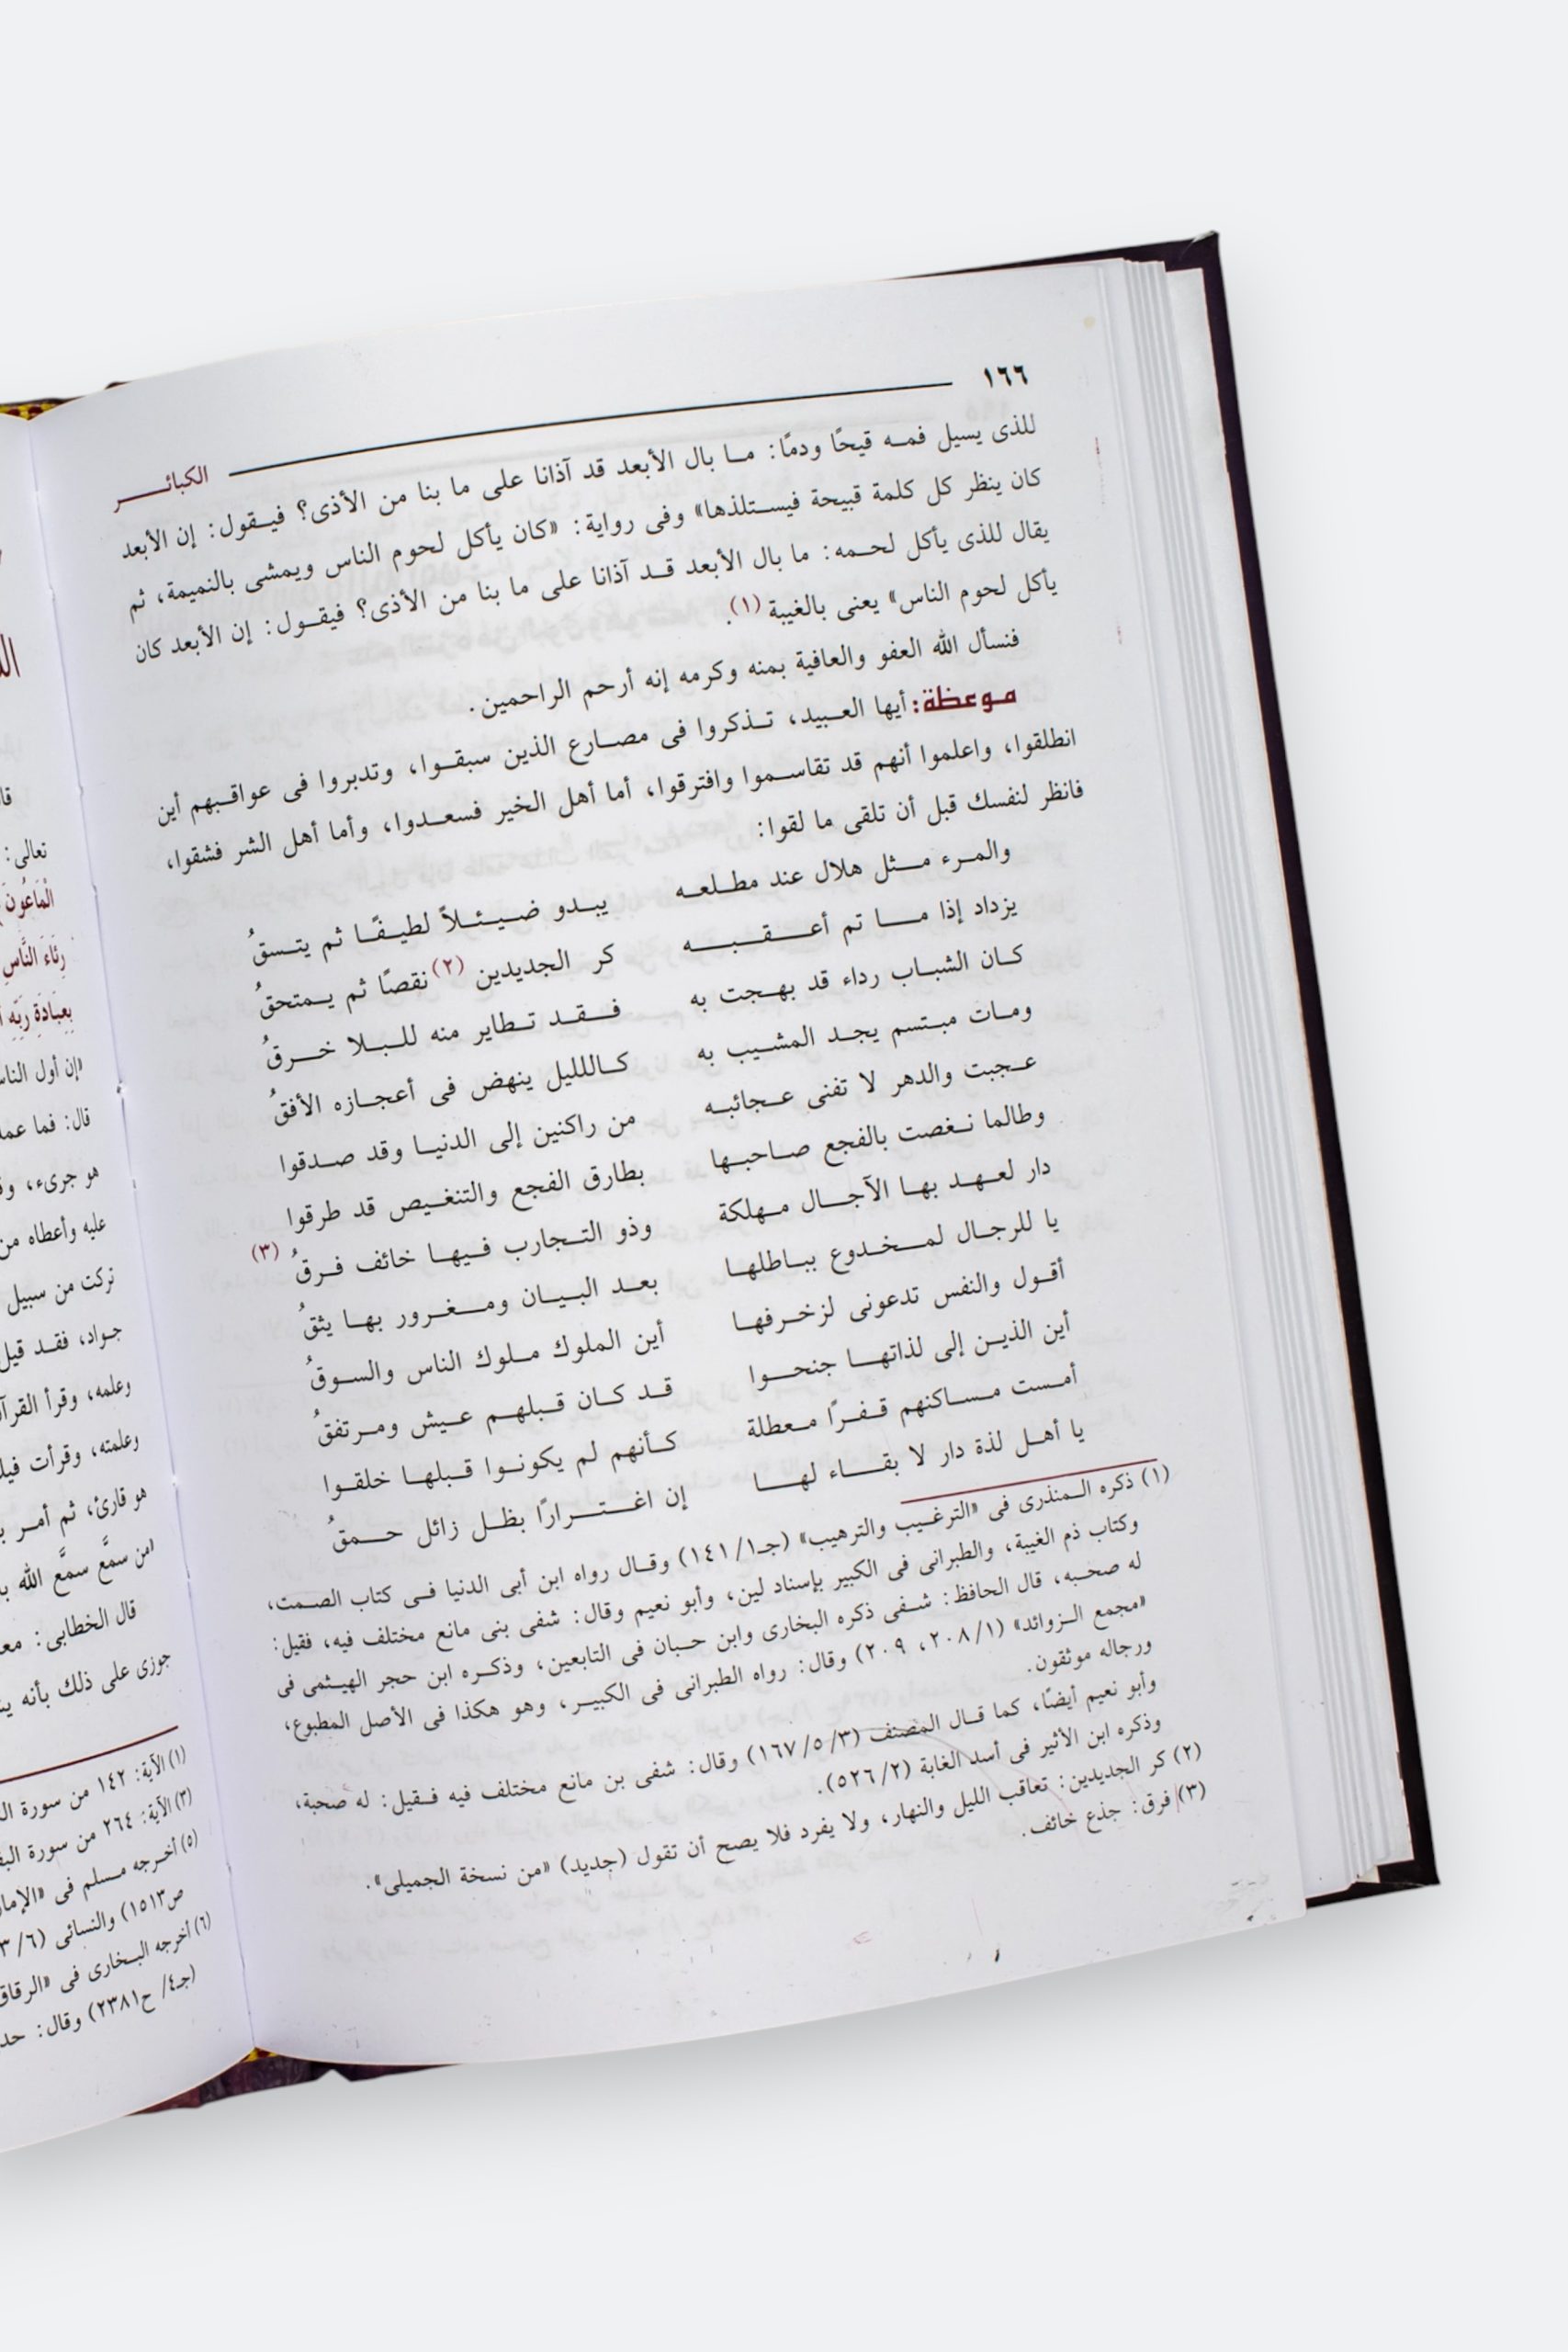 ١٦٦
الكبائـــــر
للذى يسيل فمـه قيحًا ودمًا: مـا بال الأبعد قد آذانا على ما بنا من الأذى؟ فيـقول: إن الأبعد
كان ينظر كل كلمة قبيحة فيسـتلذها» وفى رواية: «كان يأكل لحوم الناس ويمشى بالنميمة، ثم
يقال للذى يأكل لحـمه: ما بال الأبعد قـد آذانا على ما بنا من الأذى؟ فيقـول: إن الأبعد كان
يأكل لحوم الناس» يعنى بالغيبة (١).
فنسأل الله العفو والعافية بمنه وكرمه إنه أرحم الراحمين.
موعظة: أيها العـبيد، تـذكروا فى مصـارع الذين سبقـوا، وتدبروا فى عواقـبهم أين
انطلقوا، واعلموا أنهم قد تقاسـموا وافترقوا، أما أهل الخير فسعـدوا، وأما أهل الشر فشقوا،
فانظر لنفسك قبل أن تلقى ما لقوا:
والمـرء مـثل هلال عند مطـلعـه يبـدو ضـيـئـلاً لطيـفًـا ثم يتـسقُ
يزداد إذا مـــا تم أعــقــبــه كر الجديدين (٢) نقصًا ثم يـمتحقُ
كـان الشبـاب رداء قد بهـجت به فــقـد تـطاير منه للـبـلا خــرقُ
ومـات مبـتسم يجـد المشـيب به كـالليل ينهض فى أعجـازه الأفقُ
عـجبت والدهر لا تفنى عـجائبـه من راكنين إلى الدنيـا وقد صـدقوا
وطالما نـغصت بالفجع صـاحبـها بطارق الفجع والتنغـيص قد طرقوا
دار لعـهـد بهـا الآجـال مـهلكة وذو التـجارب فـيهـا خائف فـرقُ (٣)
يا للرجـال لمـخـدوع ببـاطلهـا بعـد البـيـان ومـغـرور بهـا يثقُ
أقـول والنفس تدعونى لزخـرفهـا أين الملوك مـلوك الناس والسـوقُ
أين الذيـن إلى لذاتهـا جنحـوا قـد كـان قـبلهـم عـيش ومـرتفقُ
أمـست مـسـاكنهم قـفـرًا مـعطلة كـأنهم لم يكونـوا قـبلهـا خلقـوا
يا أهـل لذة دار لا بقـاء لهـا إن اغــتــرارًا بظـل زائل حــمقُ
(١) ذكره الـمنذرى فى «الترغـيب والترهيب» (جـ١/ ١٤١) وقـال رواه ابن أبى الدنيا فـى كتاب الصـمت،
وكتاب ذم الغيبة، والطبرانى فى الكبير بإسناد لين، وأبو نعيم وقال: شفى بنى مانع مختلف فيه، فقيل:
له صحـبه، قال الحافظ: شـفى ذكره البخارى وابن حـبان فى التابعين، وذكـره ابن حجر الهيـثمى فى
«مجمع الـزوائد» (٢٠٨/١، ٢٠٩) وقال: رواه الطبرانى فى الكبيـر، وهو هكذا فى الأصل المطبوع،
ورجاله موثقون.
وأبو نعيم أيضًا، كما قـال المصنف (١٦٧/٥/٣) وقال: شفى بن مانع مختلف فيه فـقيل: له صحبة،
وذكره ابن الأثير فى أسد الغابة (٥٢٦/٢).
(٢) كر الجديدين: تعاقب الليل والنهار، ولا يفرد فلا يصح أن تقول (جديد) «من نسخة الجميلى».
(٣) فرق: جذع خائف.
تعالى:
الْمَاعُونَ
رِئَاءَ النَّاسِ
بِعِبَادَةِ رَبِّهِ
«إن أول الناس
قال: فما عم
هو جرىء،
عليه وأعطاه من
تركت من سبيل
جـواد، فقـد قيل
وعلمه، وقرأ
وعلمته، وقرأت
هو قارئ، ثم أمـر
«من سمَّع سمَّع الله
قال الخطابى:
جوزى على ذلك بأنه
(١) الآية: ١٤٢ من سورة
(٣) الآية: ٢٦٤ من سورة
(٥) أخـرجه مـسلم فى
ص١٥١٣) والنسائى
(٦) أخرجه البـخارى فى
(جـ٤/ ح٢٣٨١) وقال: